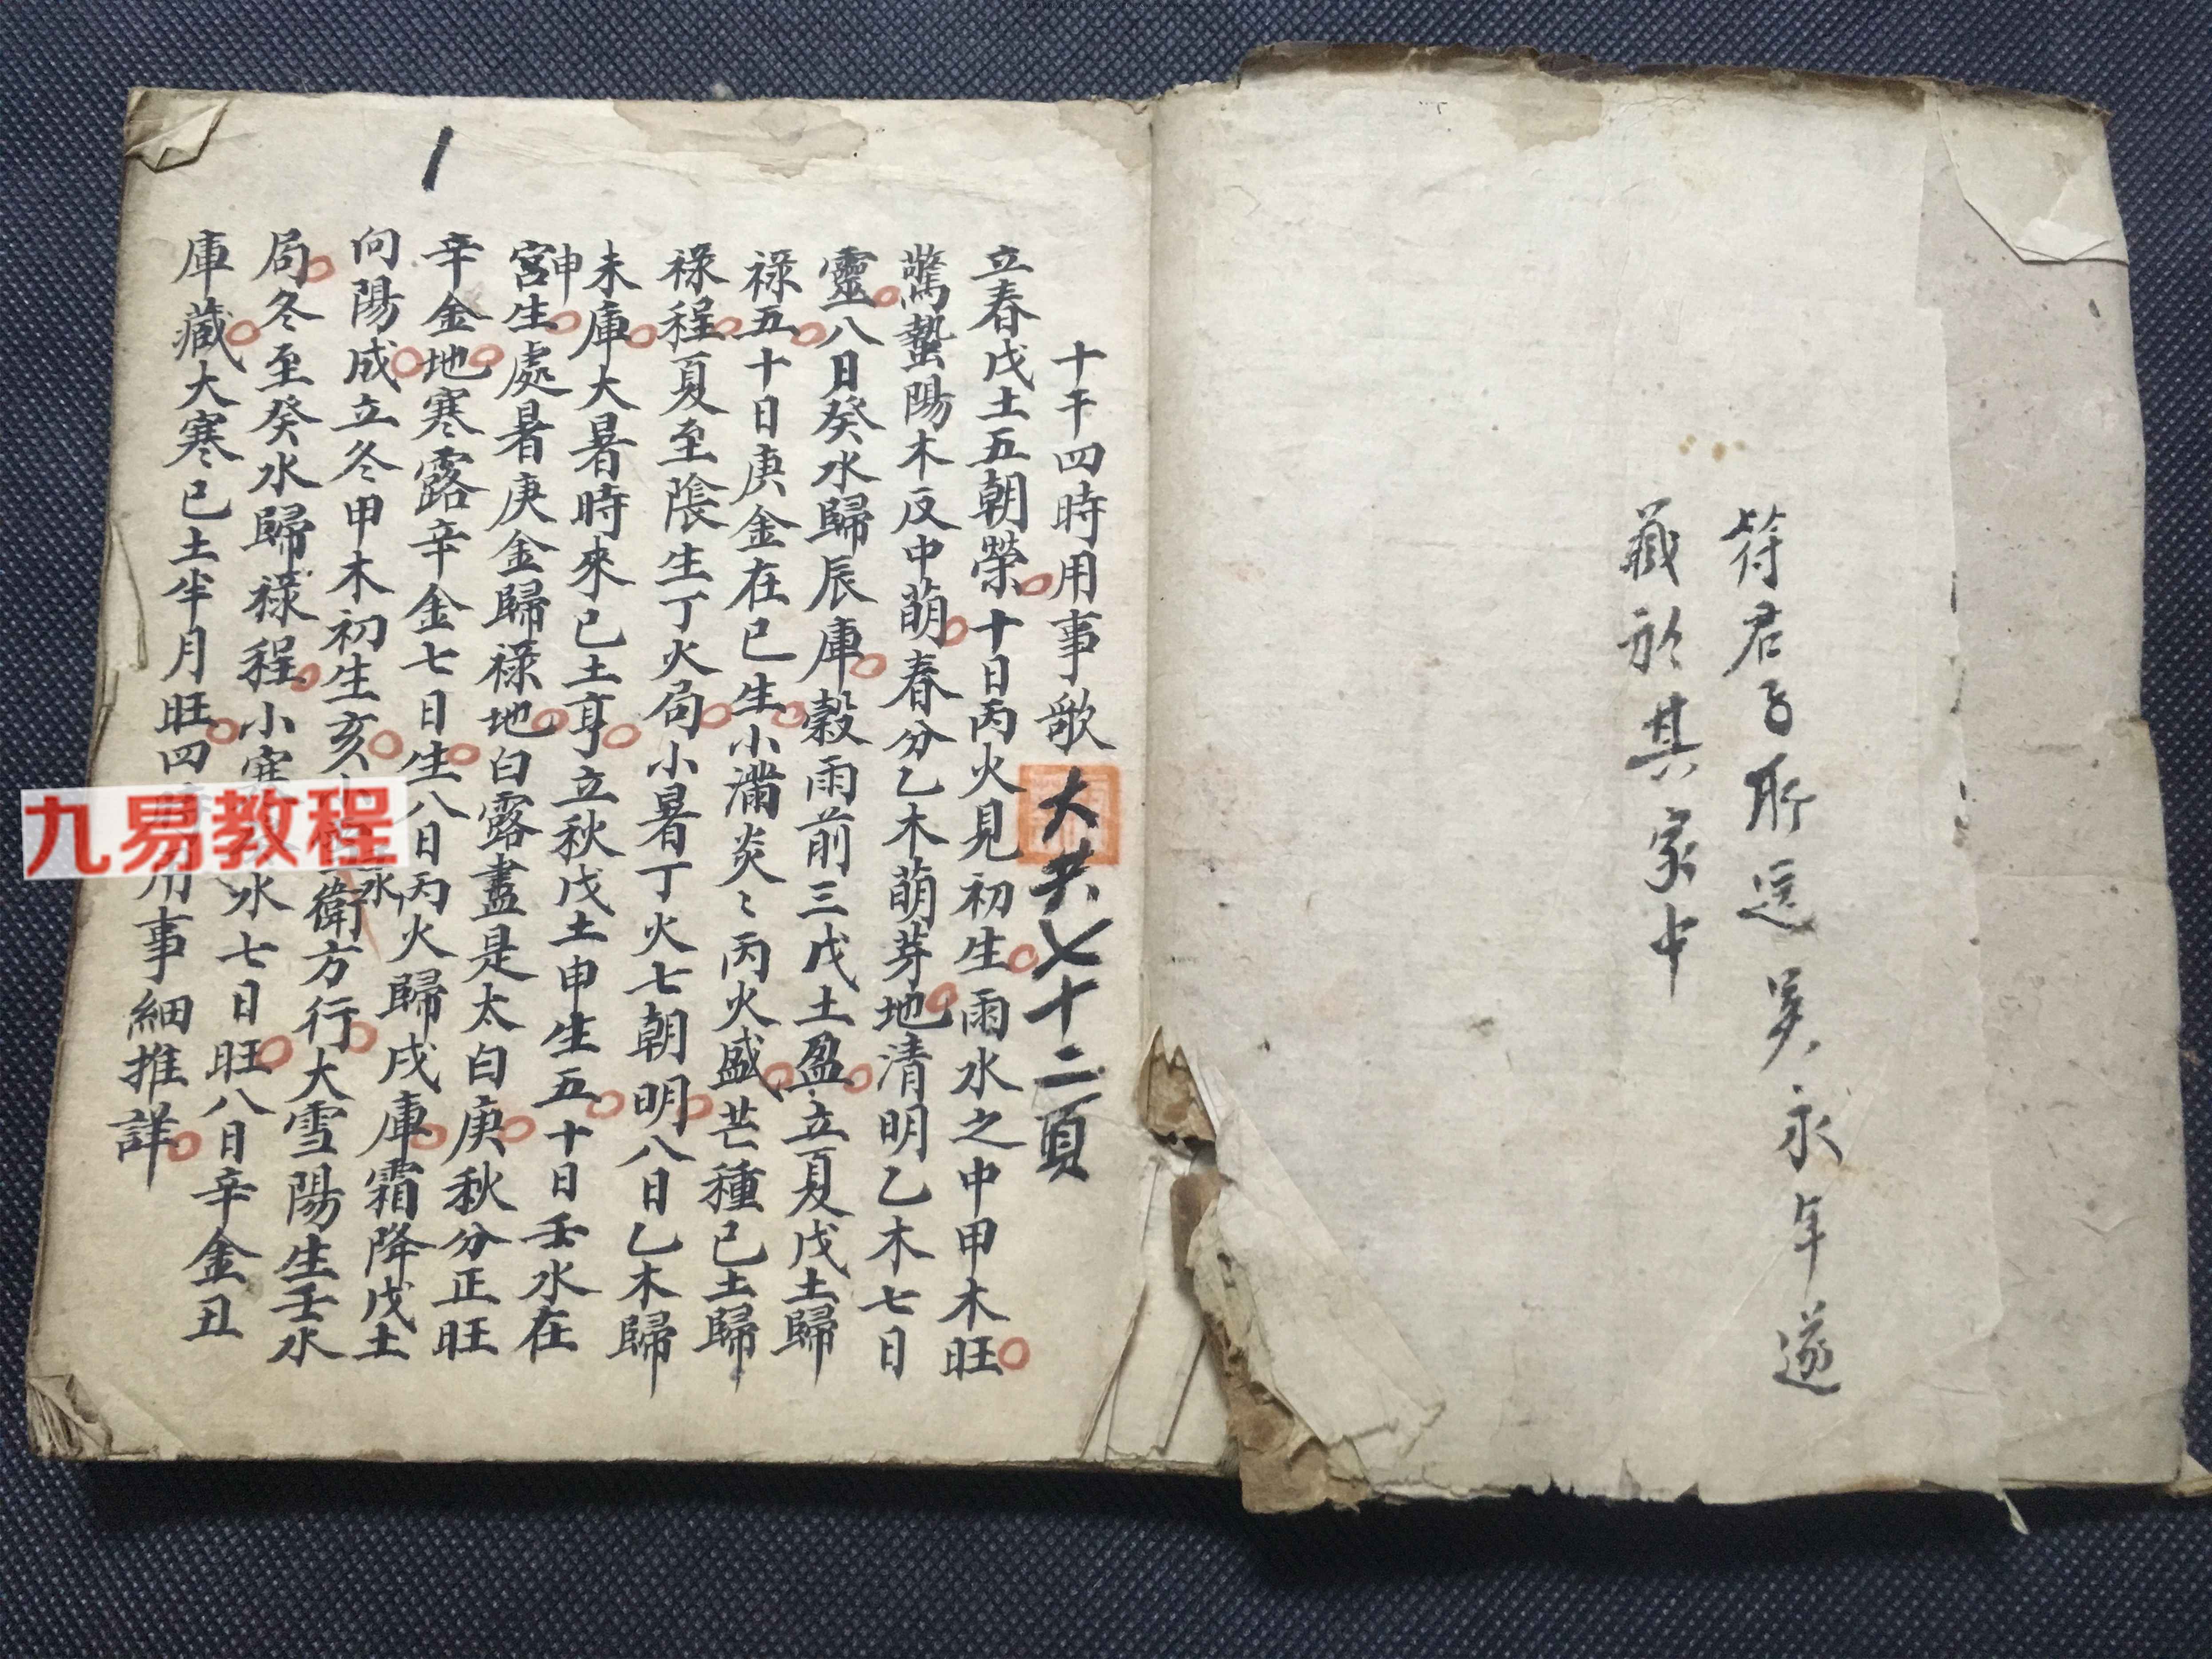 符君子所逗吴永年遂
藏於其家中
十干四時用事歌 大共七十二頁
立春戊土五朝榮十日丙火見初生雨水之中甲木旺
驚蟄陽木反中萌春分乙木萌芽地清明乙木七日
靈八日癸水歸辰庫穀雨前三戊土盈立夏戊土歸
祿五十日庚金在巳生小滿炎〻丙火盛芒種已土歸
祿程夏至陰生丁火局小暑丁火七朝明八日乙木歸
未庫大暑時來已土亨立秋戊土申生五十日壬水在
申
宮生處暑庚金歸祿地白露盡是太白庚秋分正旺
辛金地寒露辛金七日生八日丙火歸戌庫霜降戊土
向陽成立冬甲木初生亥衛方行大雪陽生壬水
水
局冬至癸水歸祿程小寒水七日旺八日辛金丑
庫藏大寒已土半月旺四用事細推詳
1
九易教程